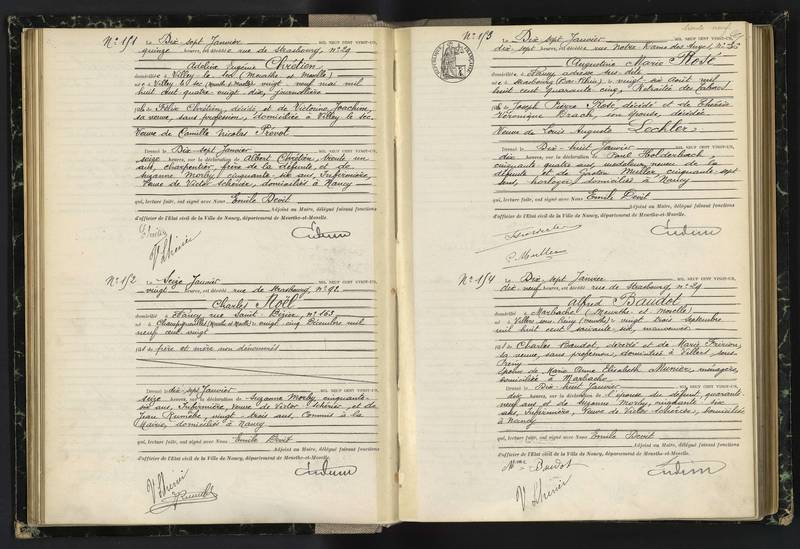 N° 151 Le Dix sept Janvier MIL NEUF CENT VINGT-UN,
quinze heures, est décédée rue de Strasbourg, N° 29
Adeline Eugénie Chrétien
domiciliée à Villey le sec (Meurthe et Moselle)
née à Villey le sec (Meurthe et Moselle) vingt neuf mai mil
huit cent quatre vingt dix, journalière
fille de Félix Chrétien, décédé et de Victorine Joachim,
sa veuve, sans profession, domiciliée à Villey le sec
Veuve de Camille Nicolas Prévot
Dressé le Dix sept Janvier MIL NEUF CENT VINGT-UN,
seize heures, sur la déclaration de Albert Chrétien, trente un
ans, charpentier, frère de la défunte et de
Suzanne Morby, cinquante six ans, Infirmière,
Veuve de Victor Schérier, domiciliés à Nancy
qui, lecture faite, ont signé avec Nous Emile Devit
Adjoint au Maire, délégué faisant fonctions
d'officier de l'Etat civil de la Ville de Nancy, département de Meurthe-et-Moselle.
N° 152 Le Seize Janvier MIL NEUF CENT VINGT-UN,
vingt heures, est décédé rue de Strasbourg, N° 92
Charles Noël
domicilié à Nancy, rue Saint Dizier, N° 163
né à Champigneulles (Meurthe et Moselle) vingt cinq Décembre mil
neuf cent vingt
fils de père et mère non dénommés
Dressé le dix sept Janvier MIL NEUF CENT VINGT-UN,
seize heures, sur la déclaration de Suzanne Morby, cinquante
six ans, Infirmière, Veuve de Victor Schérier et de
Jean vingt trois ans, Commis à la
Mairie, domiciliés à Nancy
qui, lecture faite, ont signé avec Nous Emile Devit
Adjoint au Maire, délégué faisant fonctions
d'officier de l'Etat civil de la Ville de Nancy, département de Meurthe-et-Moselle.
trente neuf
N° 153 Le Dix sept Janvier MIL NEUF CENT VINGT-UN,
dix sept heures, est décédée rue Notre Dame des Anges, N° 36
Augustine Marie Rosé
domiciliée à Nancy adresse sus dite
née à Strasbourg (Bas Rhin) le vingt six Août mil
huit cent quarante cinq, Retraitée des Tabacs
fille de Joseph Pierre Rosé décédé et de Thérèse
Véronique Brach, son épouse, décédée
Veuve de Louis Auguste Lechler
Dressé le Dix huit Janvier MIL NEUF CENT VINGT-UN,
dix heures, sur la déclaration de Paul Holderbach,
cinquante quatre ans, modeleur, neveu de la
défunte et de Gaston Muller, cinquante sept
ans, horloger, domiciliés à Nancy
qui, lecture faite, ont signé avec Nous Emile Devit
Adjoint au Maire, délégué faisant fonctions
d'officier de l'Etat civil de la Ville de Nancy, département de Meurthe-et-Moselle.
N° 154 Le Dix sept Janvier MIL NEUF CENT VINGT-UN,
dix neuf heures, est décédé rue de Strasbourg, N° 29
Alfred Baudot
domicilié à Marbache (Meurthe et Moselle)
né à Villers sous (Meuse) vingt trois septembre
mil huit cent soixante six, manœuvre
fils de Charles Baudot, décédé et de Marie
sa veuve, sans profession, domiciliée à Villers sous
Epoux de Marie Anne Elisabeth Munier, ménagère,
domiciliée à Marbache
Dressé le Dix huit Janvier MIL NEUF CENT VINGT-UN,
dix heures, sur la déclaration de l'épouse du défunt, quarante
neuf ans et de Suzanne Morby, cinquante six
ans, Infirmière, Veuve de Victor Schérier, domiciliées
à Nancy
qui, lecture faite, ont signé avec Nous Emile Devit
Adjoint au Maire, délégué faisant fonctions
d'officier de l'Etat civil de la Ville de Nancy, département de Meurthe-et-Moselle.
Mme Baudot